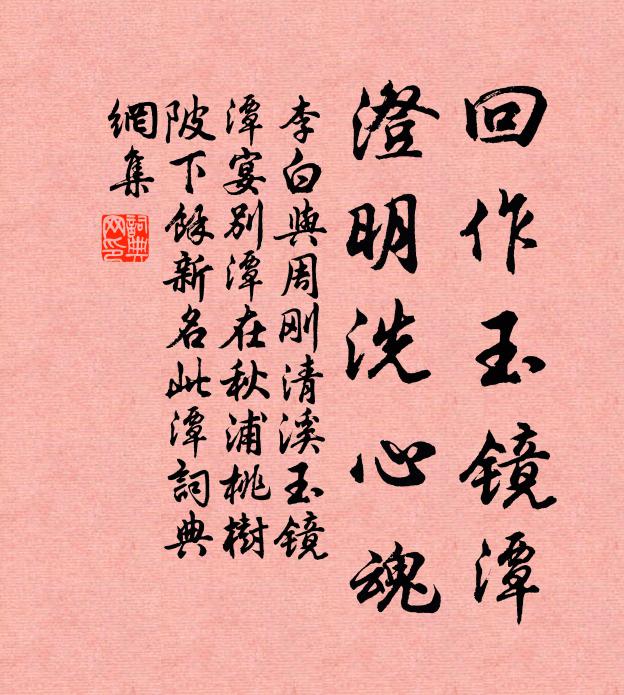 回作玉镜潭
澄明洗心魂
李白與周刚清溪玉镜
潭宴别潭在秋浦桃樹
陂下余新名此潭詞典
網集
詞典
网印